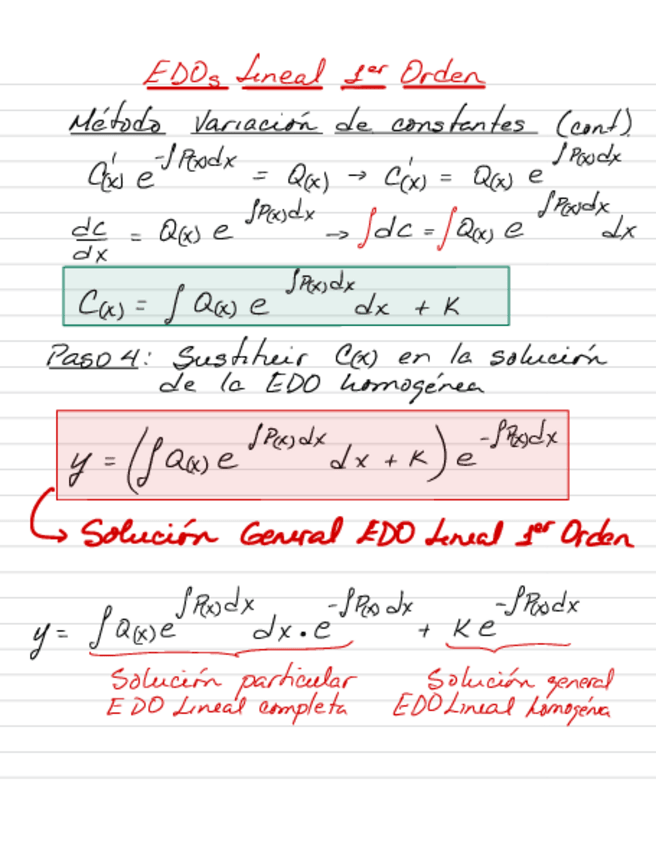 EDOs Lineal 1er Orden
Método Variación de constantes (cont)
C'(x) e^{-∫P(x)dx} = Q(x) → C'(x) = Q(x) e^{∫P(x)dx}
dc/dx = Q(x) e^{∫P(x)dx} → ∫dc = ∫Q(x) e^{∫P(x)dx} dx
C(x) = ∫ Q(x) e^{∫P(x)dx} dx + K
Paso 4: Sustituir C(x) en la solución
de la EDO homogénea
y = (∫Q(x) e^{∫P(x)dx} dx + K) e^{-∫P(x)dx}
↳ Solución General EDO Lineal 1er Orden
y = ∫Q(x)e^{∫P(x)dx} dx · e^{-∫P(x)dx} + K e^{-∫P(x)dx}
Solución particular Solución general
EDO Lineal completa EDO Lineal homogénea